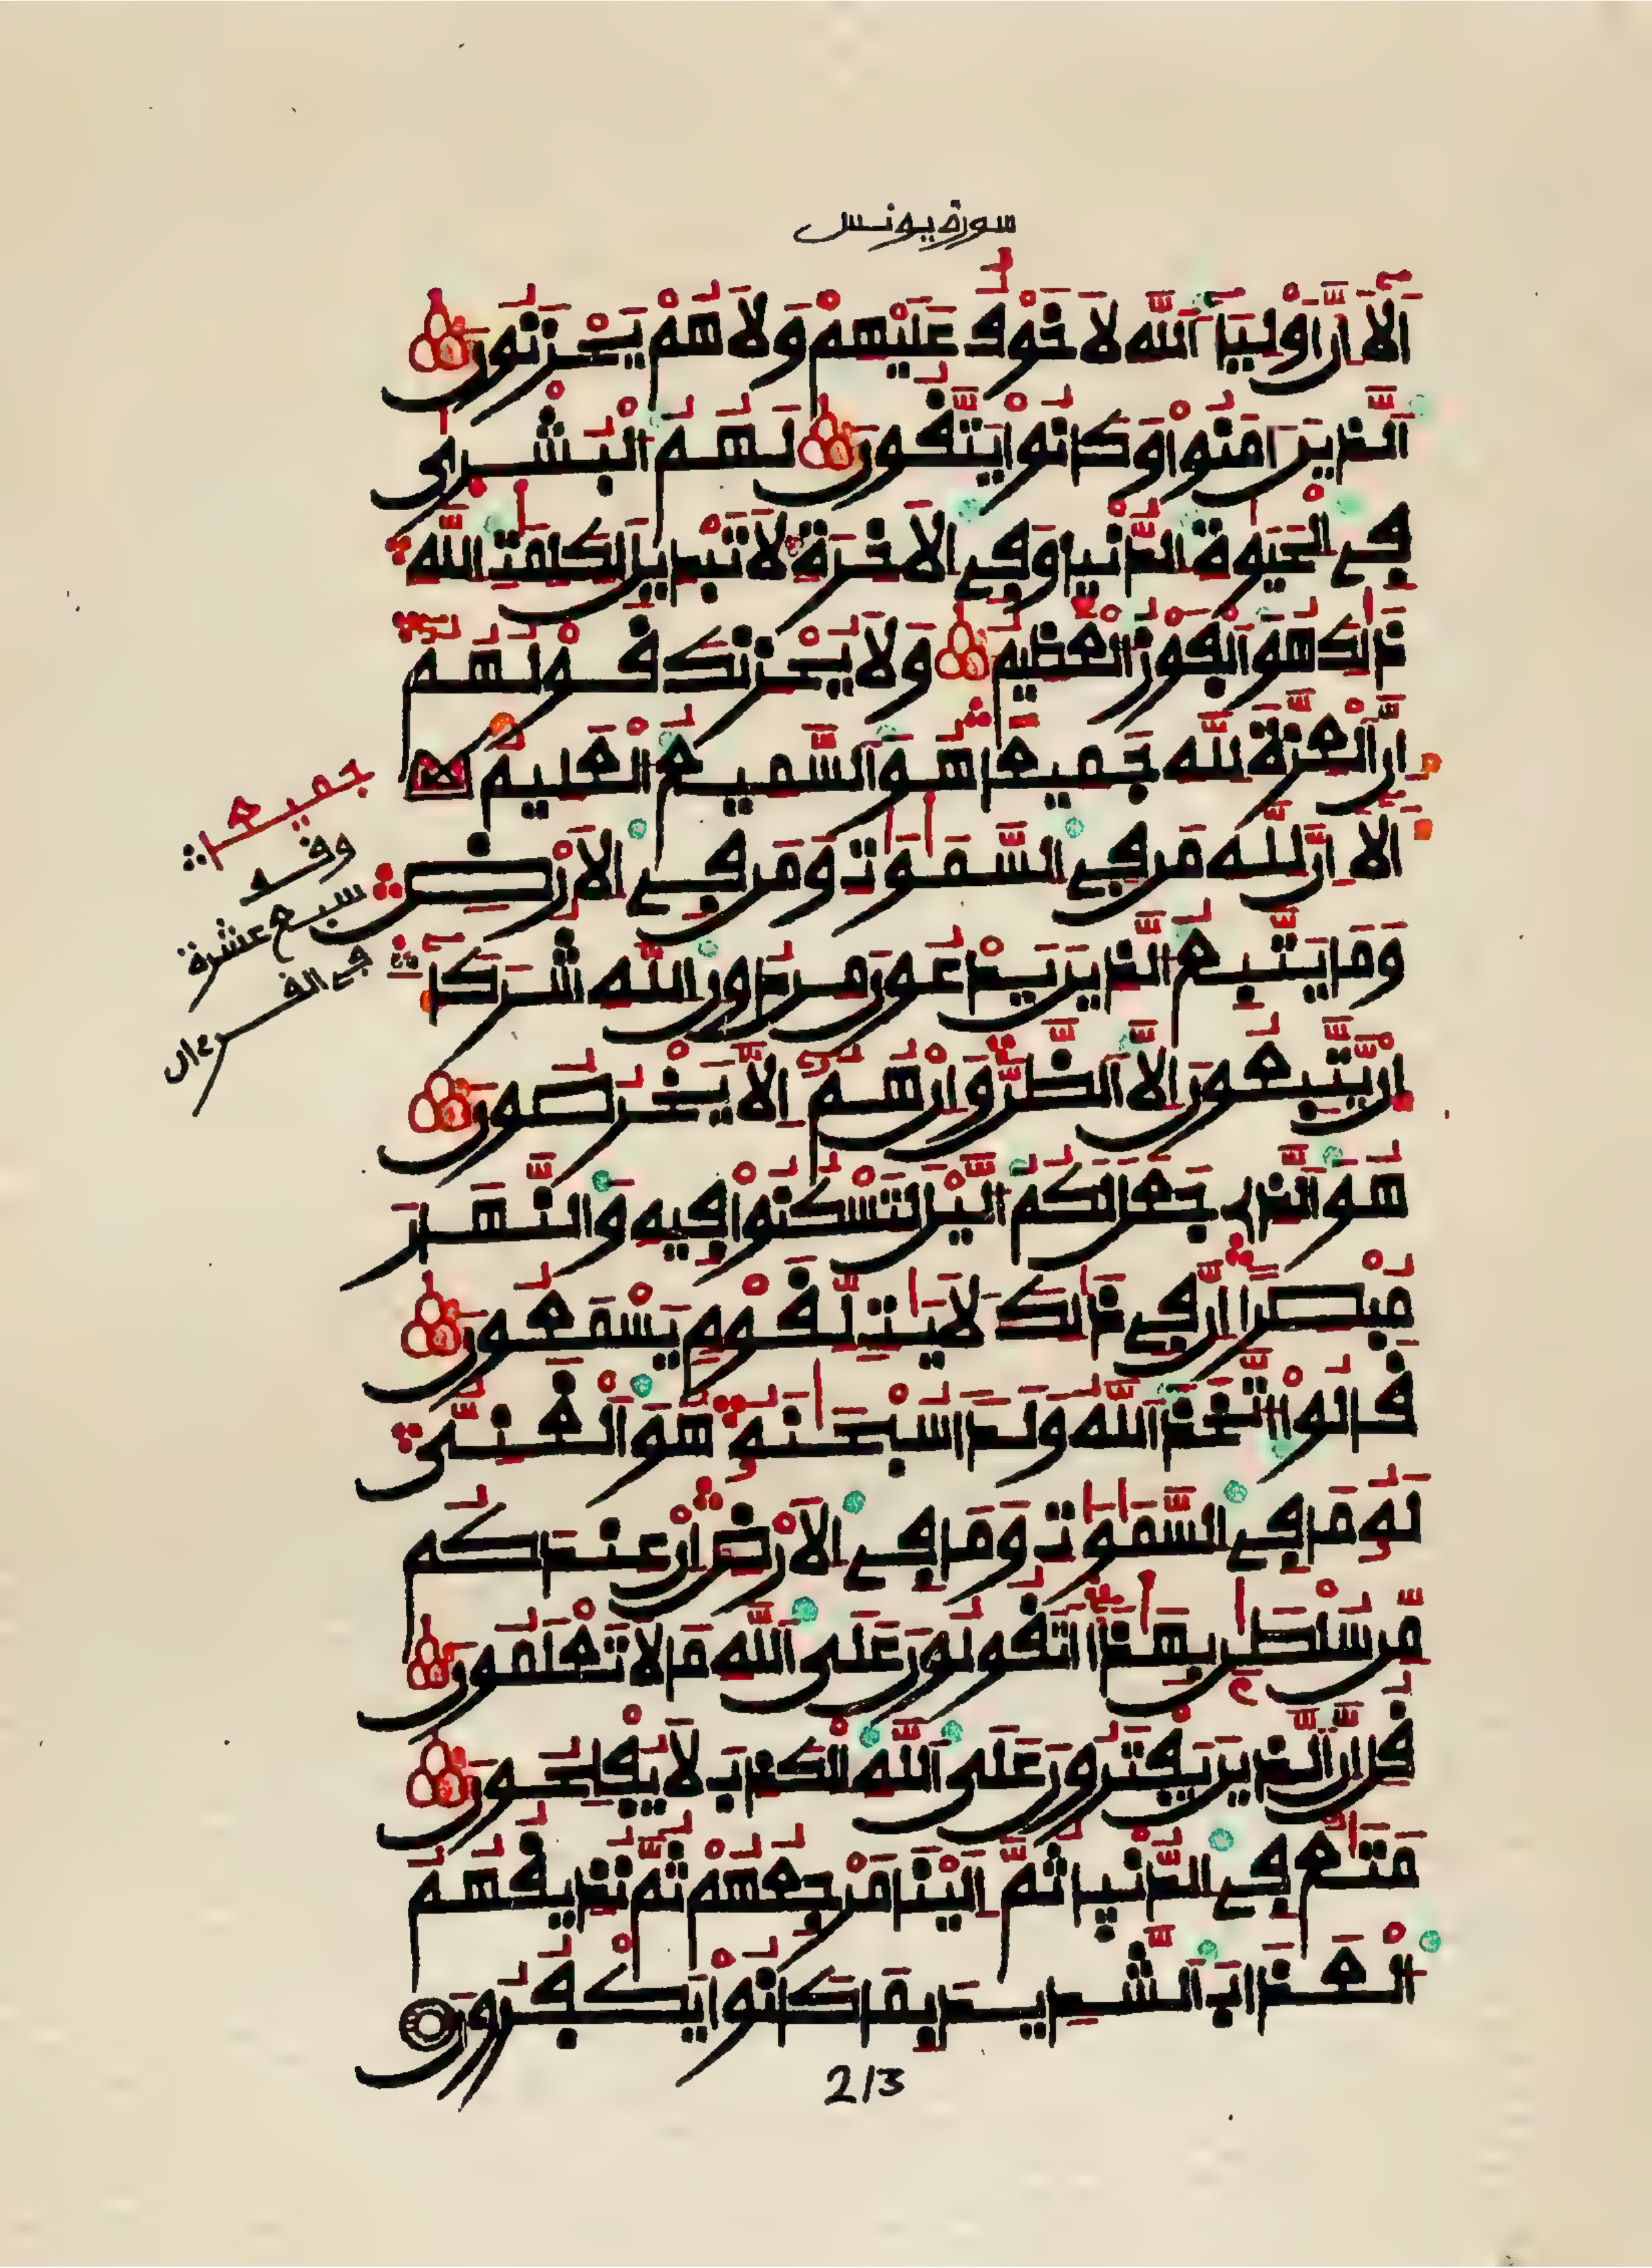 سورة يونس
أَلَآ إِنَّ أَوْلِيَآءَ اَللَّهِ لَا خَوْفٌ عَلَيْهِمْ وَلَا هُمْ يَحْزَنُونَ
اَلَّذِينَ ءَامَنُواْ وَكَانُواْ يَتَّقُونَ لَهُمُ اُلْبُشْرٜىٰ
فِے اِلْحَيَوٰةِ اِلدُّنْيٜا وَفِے اِلَاخِرَةِ لَا تَبْدِيلَ لِكَلِمَٰتِ اِللَّهِ
ذَٰلِكَ هُوَ اَلْفَوْزُ اُلْعَظِيمُ وَلَا يُحْزِنكَ قَوْلُهُمُۥٓ
إِنَّ اَلْعِزَّةَ لِلهِ جَمِيعاً هُوَ اَلسَّمِيعُ اُلْعَلِيمُ
أَلَآ إِنَّ لِلهِ مَن فِے اِلسَّمَٰوَٰتِ وَمَن فِے اِلَارْضِ
وَمَا يَتَّبِعُ اُلذِينَ يَدْعُونَ مِن دُونِ اِللَّهِ شُرَكَآءَ
اِنْ يَّتَّبِعُونَ إِلَّا اَلظَّنَّ وَإِنْ هُمُۥٓ إِلَّا يَخْرُصُونَ
هُوَ اَلذِے جَعَلَ لَكُمُ اُلَّيْلَ لِتَسْكُنُواْ فِيهِ وَالنَّهَارَ
مُبْصِراً إِنَّ فِے ذَٰلِكَ لَأٓيَٰتٍ لِّقَوْمٍ يَسْمَعُونَ
قَالُواْ اُتَّخَذَ اَللَّهُ وَلَداً سُبْحَٰنَهُۥ هُوَ اَلْغَنِيُّ
لَهُۥ مَا فِے اِلسَّمَٰوَٰتِ وَمَا فِے اِلَارْضِ إِنْ عِندَكُم
مِّن سُلْطَٰنِۢ بِهَٰذَآ أَتَقُولُونَ عَلَى اَللَّهِ مَا لَا تَعْلَمُونَ
قُلِ اِنَّ اَلذِينَ يَفْتَرُونَ عَلَى اَللَّهِ اِلْكَذِبَ لَا يُفْلِحُونَ
مَتَٰعٌ فِے اِلدُّنْيٜا ثُمَّ إِلَيْنَا مَرْجِعُهُمْ ثُمَّ نُذِيقُهُمُ
اُلْعَذَابَ اَلشَّدِيدَ بِمَا كَانُواْ يَكْفُرُونَ
جميعا
وقف
سبع عشرة
في القرءان
213